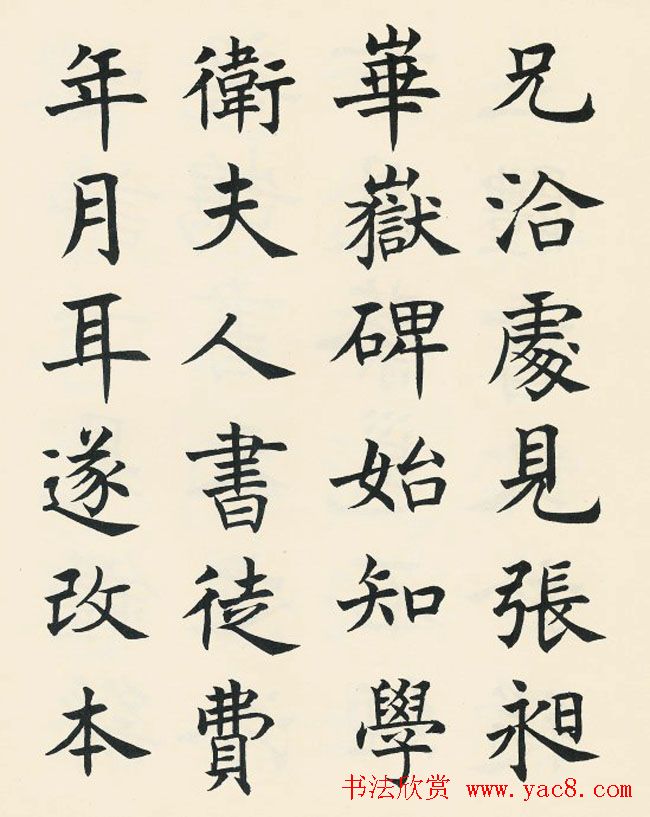 兄洽處見張昶
崋嶽碑始知學
衛夫人書徒費
年月耳遂改本
书法欣赏 www.yac8.com